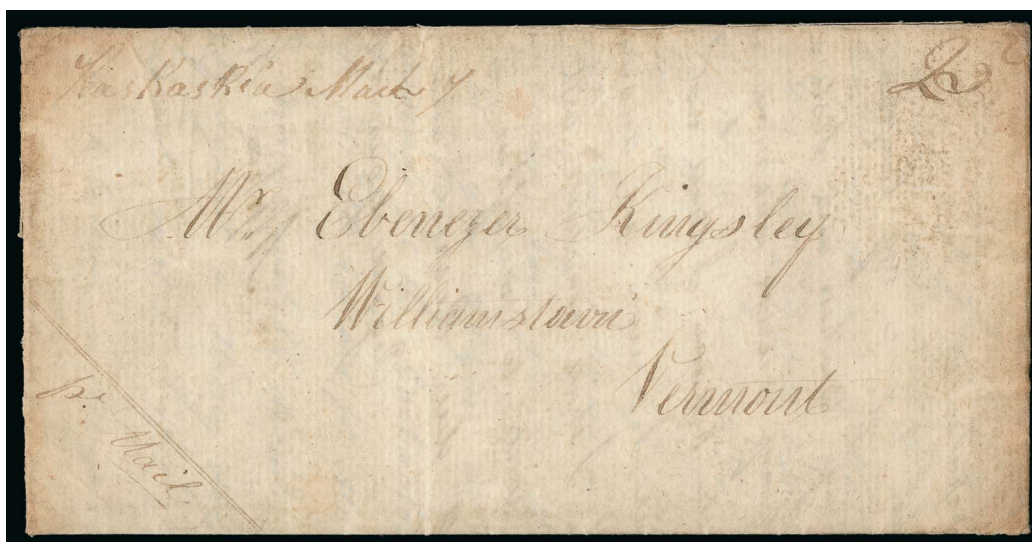 Kaskaskia March 7
Mr. Ebenezer Kingsley
Williamstown
Vermont
pr. Mail